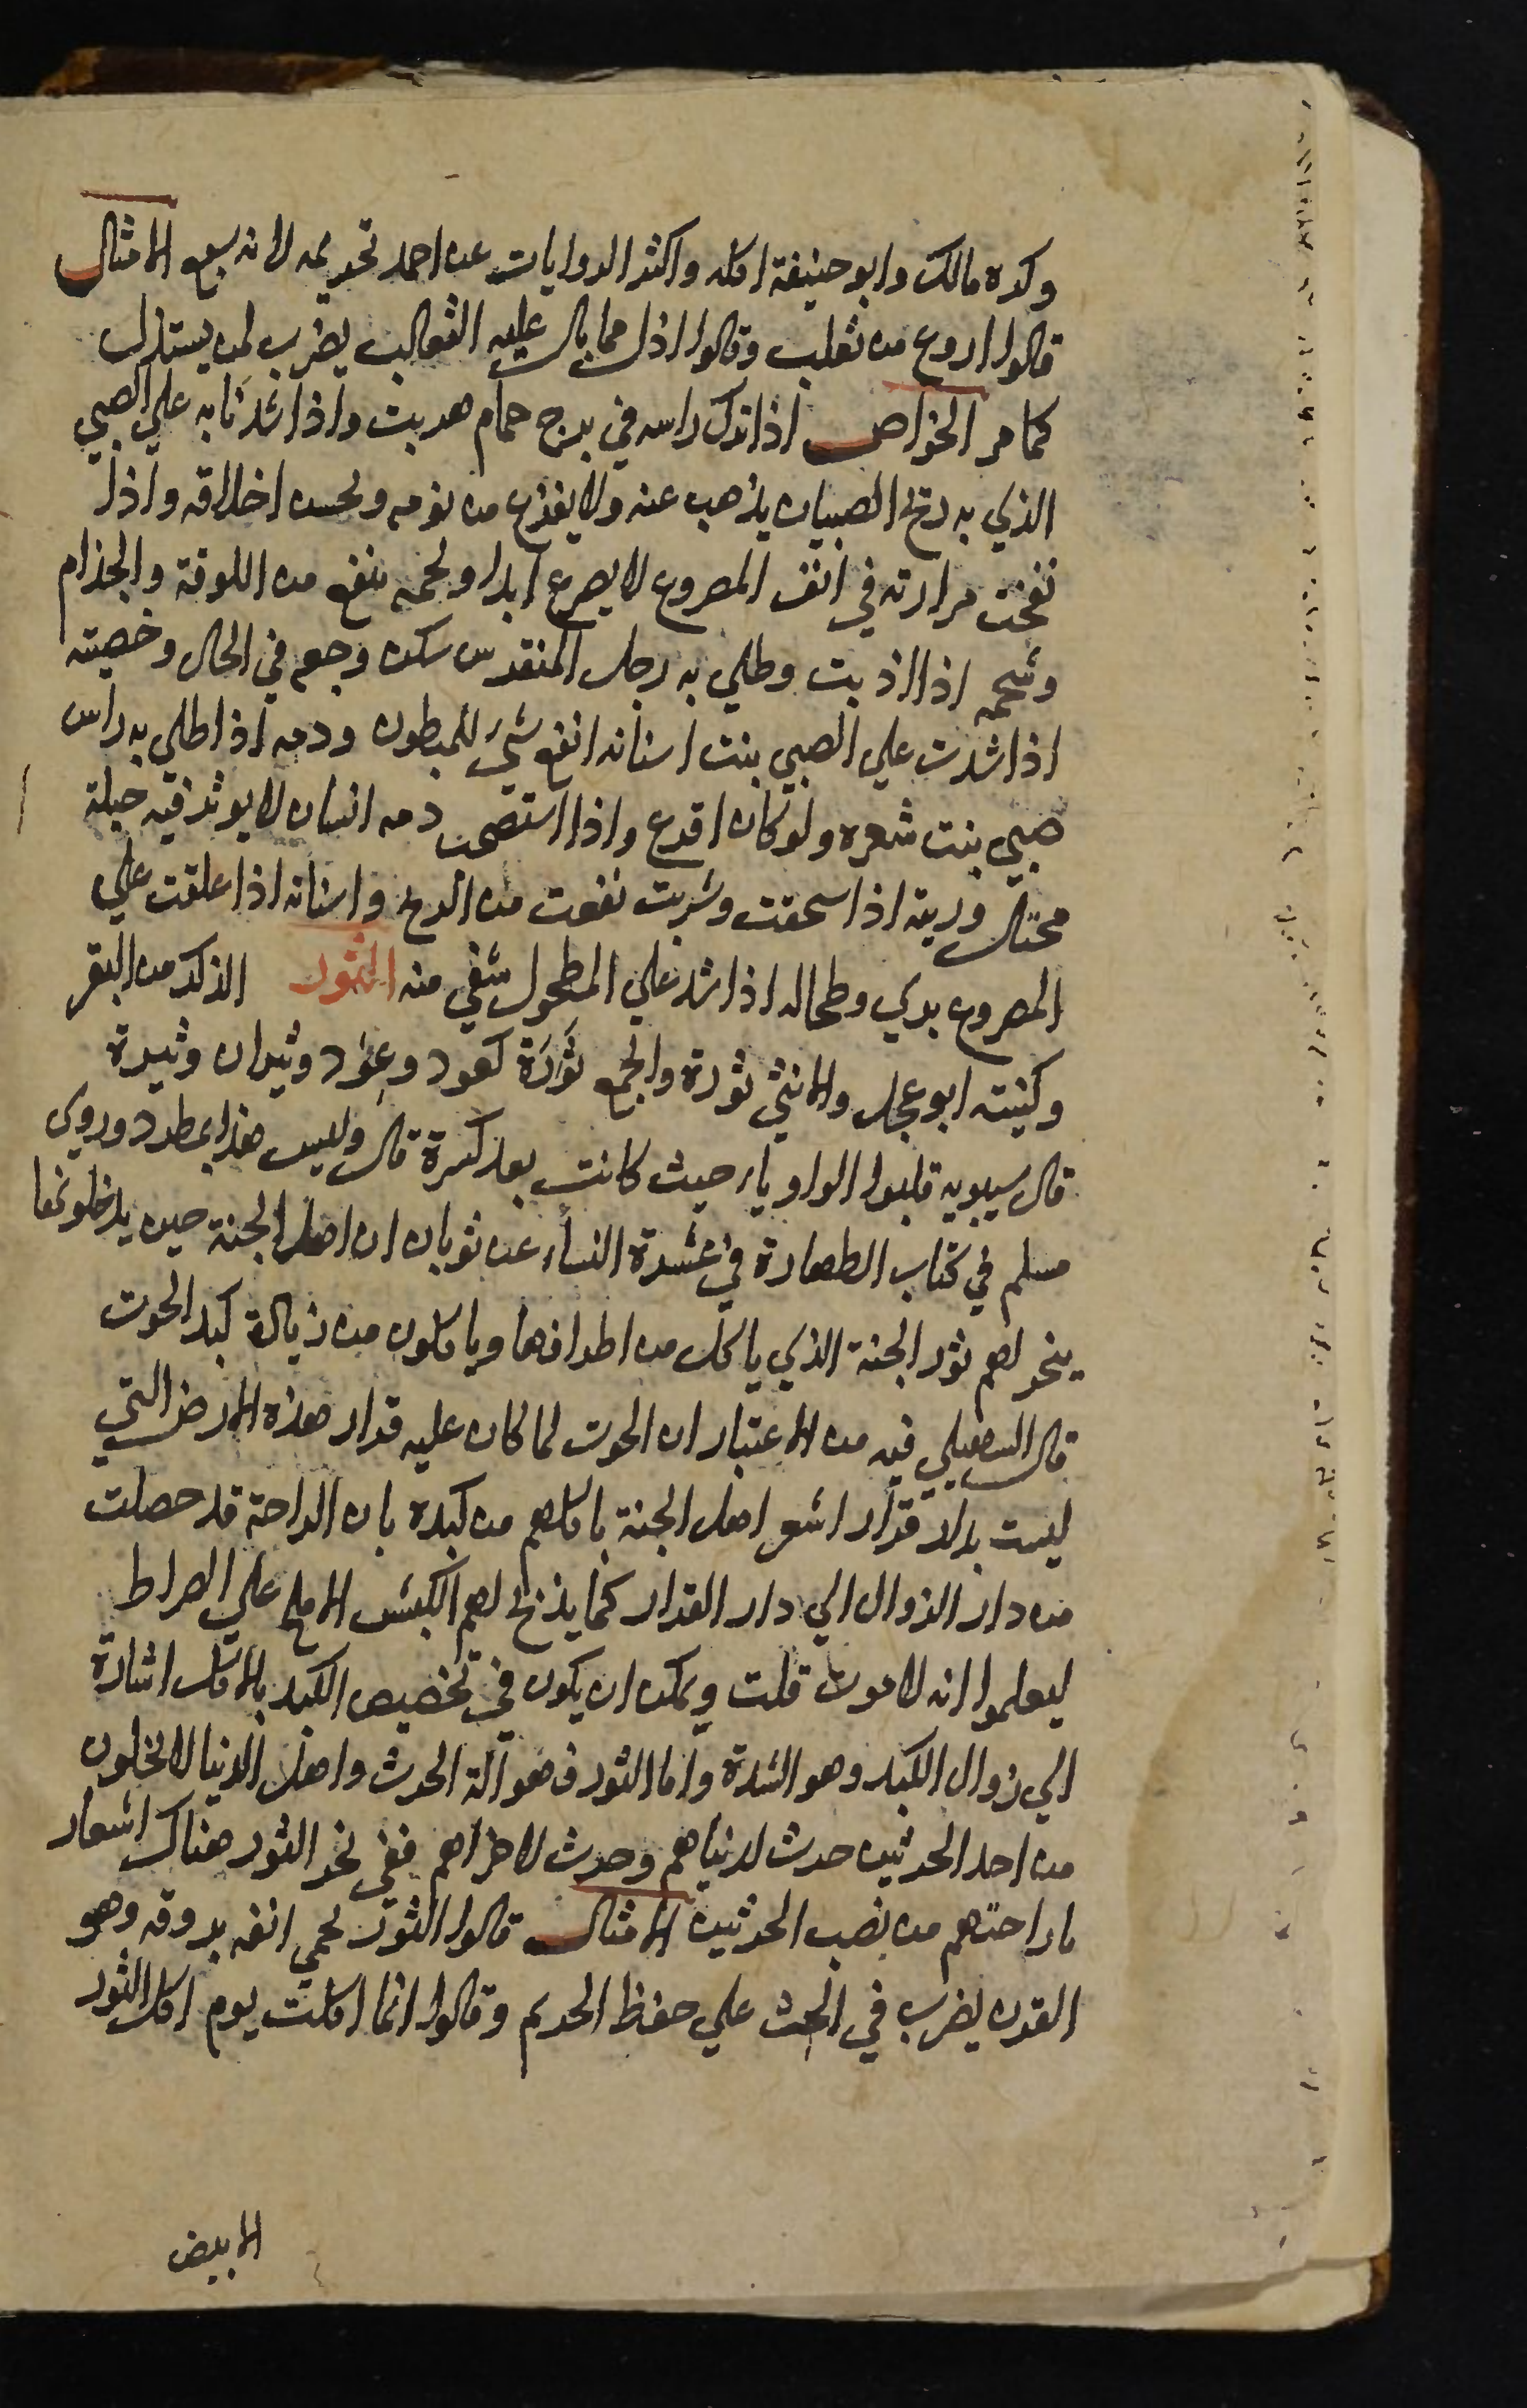 وكره مالك وابو حنيفة اكله واكثر الروايات عن احمد تحريمه لانه سبع الامثال
قالوا اروع من ثعلب وقالوا اذل مما بالت عليه الثعالب يضرب لمن يستذل
كما مر الخواص اذا ترك راسه في برج حمام هربت واذا شد نابه علي الصبي
الذي به ريح الصبيان يذهب عنه ولا يفزع من نومه ولحسن اخلاقه واذا
نفخت مرارته في انف المصروع لا يصرع ابدا ولحمه ينفع من اللوقة والجذام
وشحمه اذا اذيبت وطلي به رجل المنقرس سكن وجعه في الحال وخصيته
اذا شدت علي الصبي بنت اسنانه انفع شيء للمبطون ودمه اذا طلي به راس
صبي بنت شعره ولو كان اقرع واذا استصحب دمه انسان لا يوثر فيه حيلة
محتال وريته اذا سحقت وشربت نفعت من الريح واسنانه اذا علقت علي
المصروع بري وطحاله اذا شد علي المطحول شفي منه الثور الذكر من البقر
وكنيته ابو عجل والانثي ثورة والجمع ثَوَرَة كعود وعِوَد وثيران وثيرة
قال سيبويه قلبوا الواو ياء حيث كانت بعد كسرة قال وليس هذا بمطرد وروي
مسلم في كتاب الطهارة في عشرة النساء عن ثوبان ان اهل الجنة حين يدخلونها
ينحر لهم ثور الجنة الذي ياكل من اطرافها وياكلون من زيادة كبد الحوت
قال السهيلي فيه من الاعتبار ان الحوت لما كان عليه قرار هذه الارض التي
ليست بدار قرار اشعر اهل الجنة باكلهم من كبده بان الراحة قد حصلت
من دار الزوال الي دار القرار كما يذبح لهم الكبش الاملح علي الصراط
ليعلموا انه لا موت قلت ويمكن ان يكون في تخصيص الكبد بالاكل اشارة
الي زوال الكبد وهو الشدة واما الثور فهو آلة الحرث واهل الدنيا لا يخلون
من احد الحرثين حرث لدنياهم وحرث لاخراهم ففي نحر الثور هناك اشعار
باراحتهم من نصب الحرثين الامثال قالوا الثور يحمي انفه بروقه وهو
القرن يضرب في الحث علي حفظ الحريم وقالوا انما اكلت يوم اكل الثور
الابيض